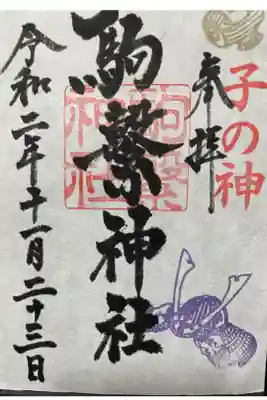 子の神
奉拝
駒繋神社
駒繋
神社
令和二年十一月二十三日